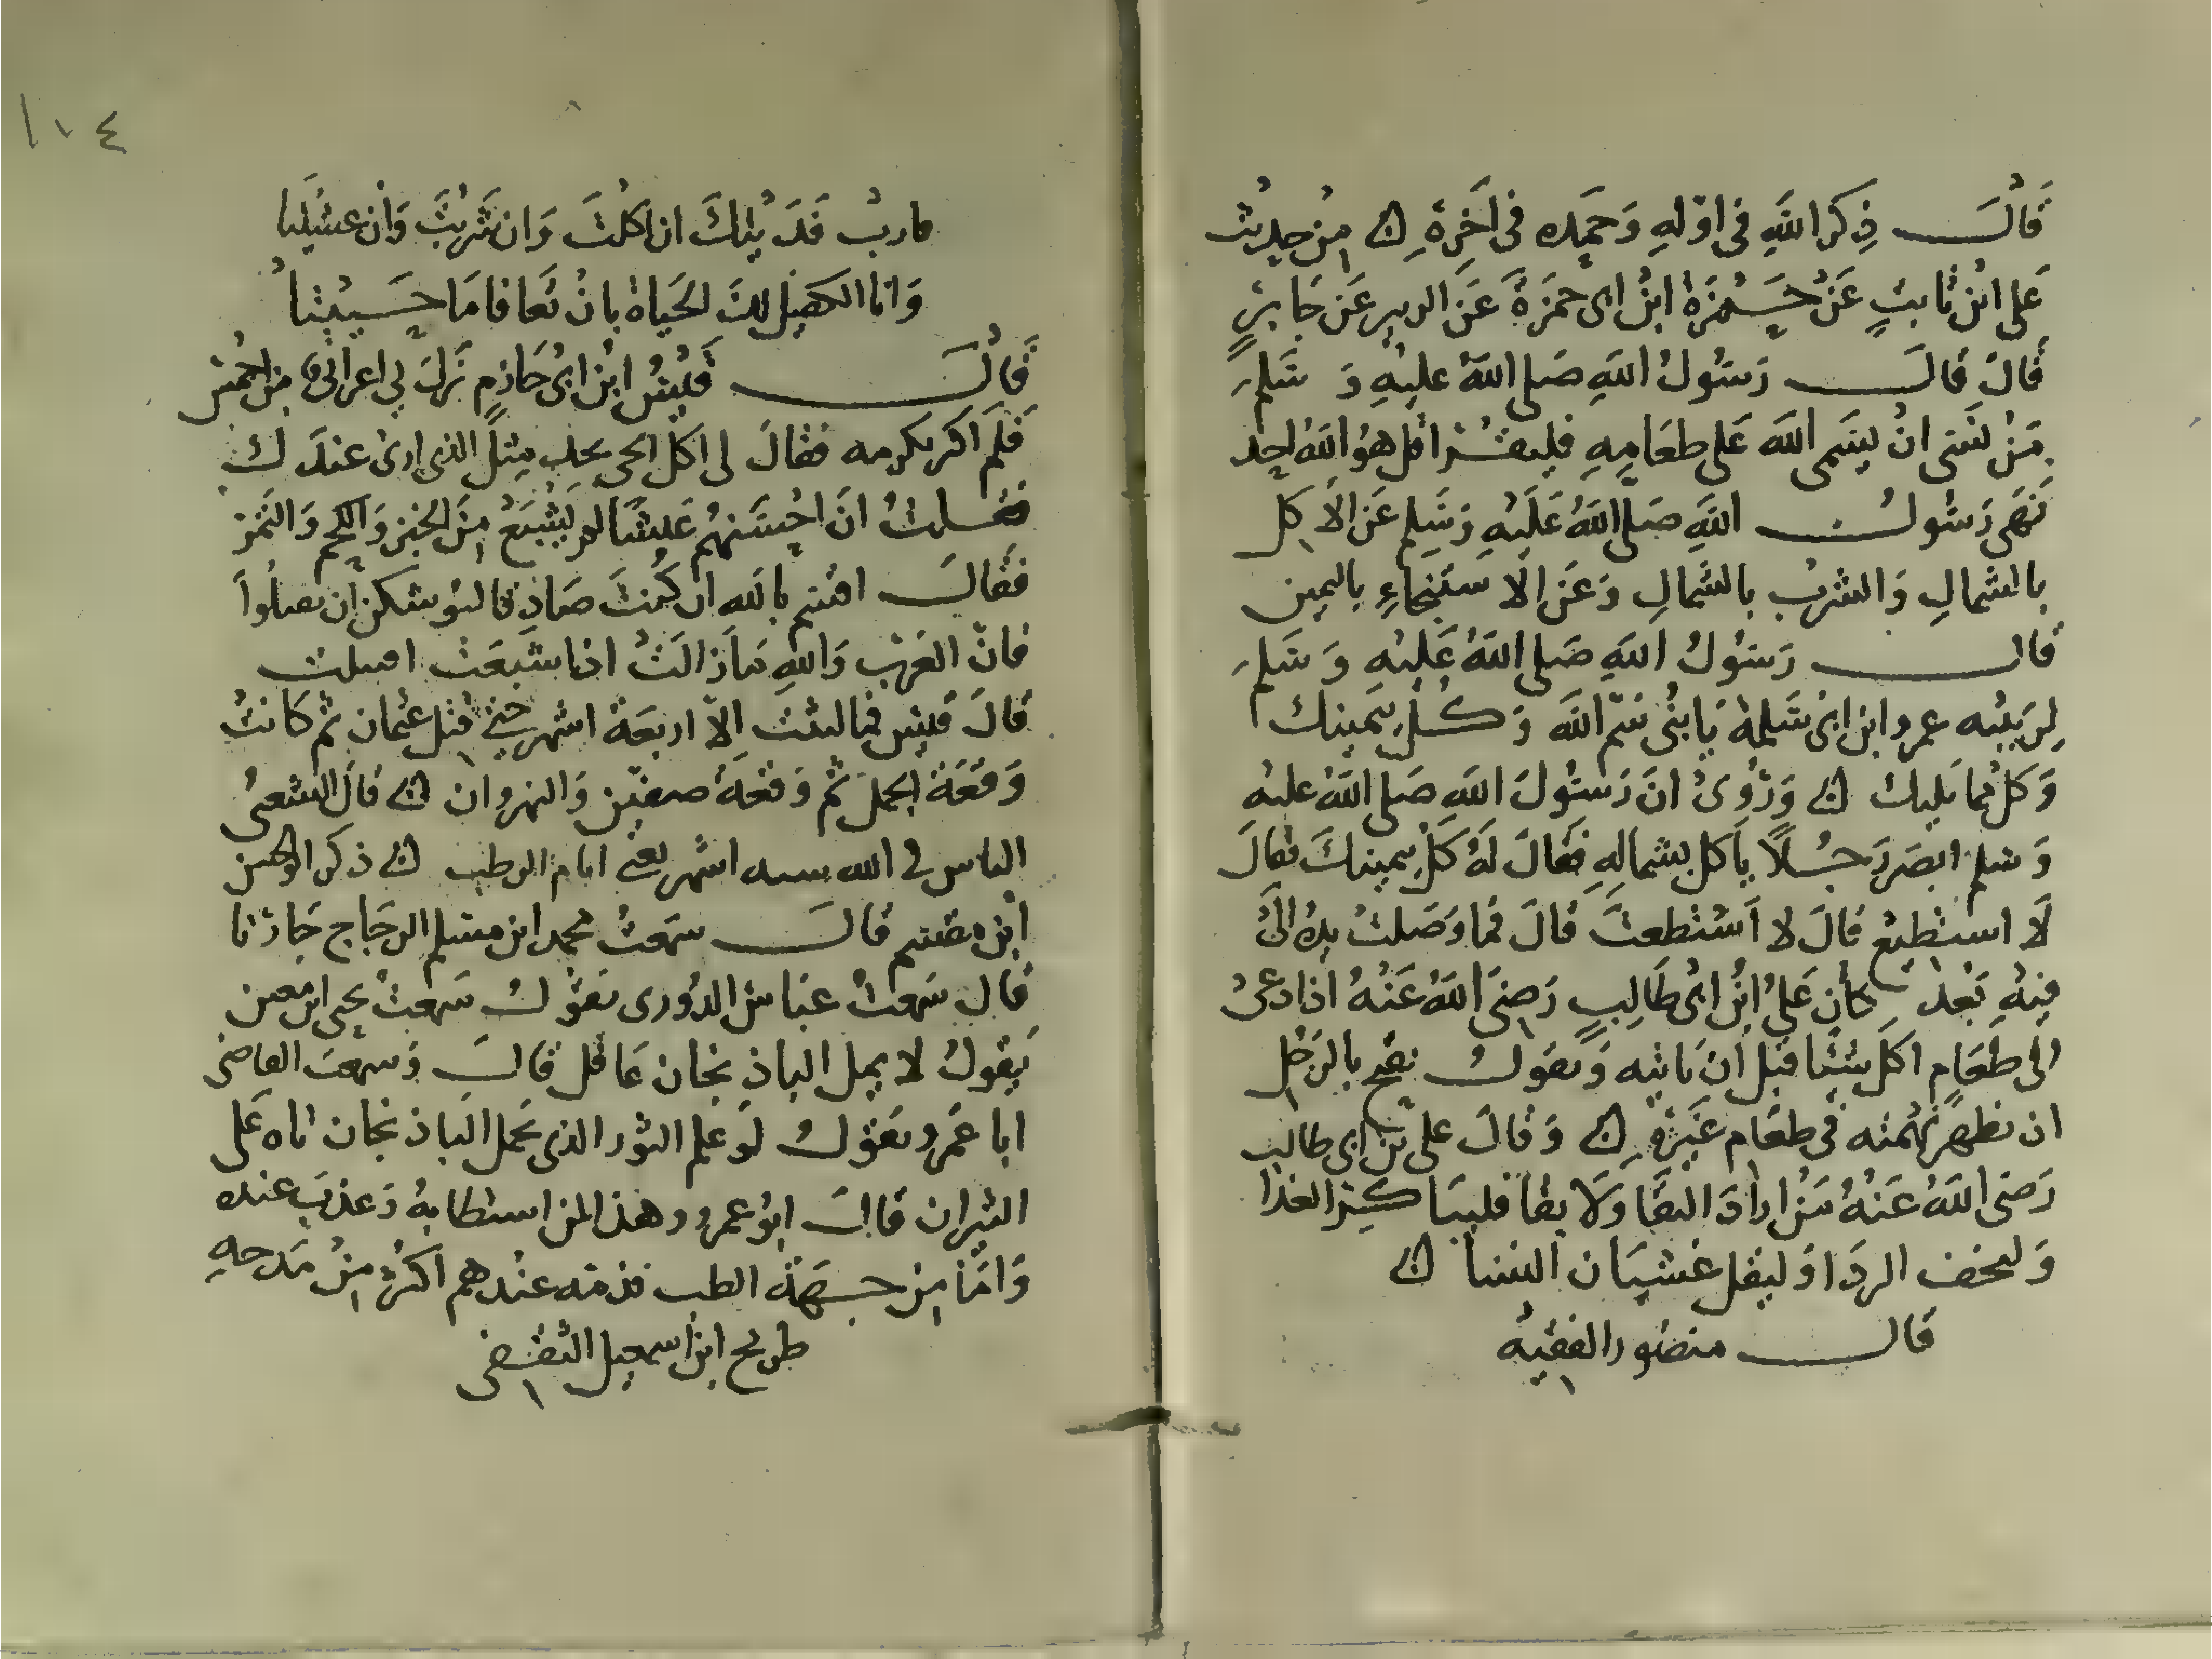 قَالَ ذِكر اللهِ فى اوّلهِ وَحمَده فى آخِرهِ ۞ مِن حديث
عَلى ابن ثابتٍ عَنْ حَمْزَة ابن ابى حمزَة عَن ابى الزبير عَن جَابرٍ
قالَ قالَ رَسُولُ اللهِ صَلى اللهُ عليْهِ وَ سَلمَ
مَنْ نسَى انْ يسَمى اللهَ عَلى طعَامِهِ فليقرا قل هوُ اللهُ احد
نَهَى رَسُولُ اللهِ صَلَّى اللهُ عَلَيْهِ وَسَلم عَن الاكل
بالشمالِ وَالشربْ بالشمالِ وَعَن الاستنجاءِ باليمين
قال رَسُولُ اللهِ صَلى اللهُ عَليْهِ وَ سَلمَ
لِرَبيْبه عمرو ابن ابى سَلمة يَابنُى سَم اللهَ وَكُلْ بيَمينك
وَكل مما يليك ۞ وَرُوىَ انَ رَسُولَ اللهِ صَلى اللهُ عليْهِ
وَسلم ابصَرَ رَجُلاً ياكل بشمالهِ فقَالَ لهُ كلْ بيمينكَ فقالَ
لَا استطيع قالَ لا اسْتطعتَ قالَ فما وَصَلتْ يدهُ الىَ
فيْهِ بَعْد كان عَلى ابْن ابىْ طَالِبٍ رَضىَ اللهُ عَنْهُ اذا دعىْ
الى طَعَامٍ اكلَ شيْئا قبل ان ياتيه وَيقولُ يقبح بالرَجُل
ان تظهَر نهمته فى طعَام غيَرهِ ۞ وَقالَ على بن ابى طالب
رَضى اللهُ عَنْهُ مَنْ ارادَ البقَا وَلَا بقا فليبَاكر الغذا
وَليخفف الردَا وَليقل غشيَان النسا ۞
قال منصُور الفقيْه
١٠٤
مارب فَدَيْتكَ ان اكَلْتَ وَان شَربتَ وَان عشيْتا
وَانا الكفيل لك الحَياة بانْ تعَافا مَا حَييْتا
قالَ قَيْسُ ابْن ابىْ حَازِم نزلَ بى اعرابى من احْمس
فلم اكن بكرمه فقالَ لى اكل الحى يجد مثل الذى ارى عندَك
فقلتُ انَ احسَنهُم عَيْشًا لمن يَشْبَعُ مِنَ الخبز وَاللحم وَالتمر
فقالَ اقسم بالله ان كُنتَ صَادقا ليوشكن ان يقتلواَ
فانّ العَرَب وَاللهِ مَازالَتْ اذا شَبعَتْ اقتتلت
قالَ قيْس فما لبثت الاّ اربعَة اشهر حتى قتل عثمان ثم كانتْ
وَقعَة الجمل ثم وَقعَة صفيّن وَالنهروان ۞ قال الشعبىُ
الناس فى الله سته اشهر يعنى ايام الرطب ۞ ذكر ابو الحسن
ابن مقسم قالَ سَمعتُ محمد ابن مسلم الزجَاج جَارَنا
قال سَمعت عَباس الدوُرى يَقوْلُ سَمعتُ يحيى ابن معين
يَقولُ لا يمل الباذنجان عَاقل قالَ وَسَمعت القاضى
ابا عَمرو يقوْلُ لوَ علم الثور الذى يَحمل الباذنجان تاه عَلى
الثيران قالَ ابوُ عمرو وهذا لمن استطابهُ وَعذبَ عنده
وَامّا مِنْ جهَة الطب فذمّه عنْدهم اكثرُ مِنْ مَدحهِ
طريح ابن اسمعيل الثقفى